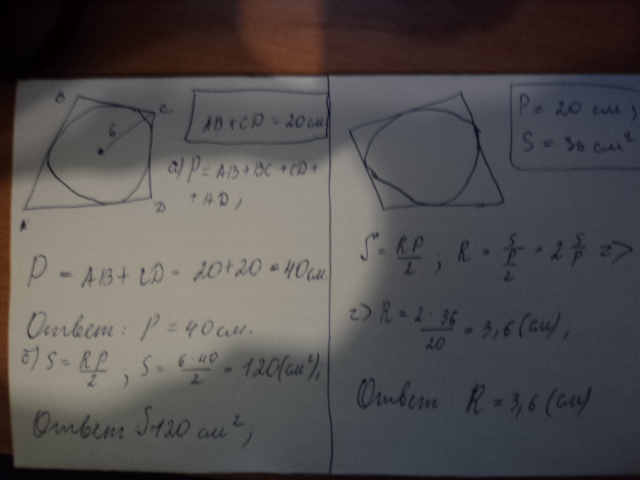 B
C
6
A
D
AB+CD=20см
а) P=AB+BC+CD+
+AD;
P = AB+CD= 20+20=40см
Ответ: P=40см.
б) S=RP/2 ; S=6·40/2=120(см²);
Ответ: S=120см²;
P=20см;
S=36см²
S=RP/2 ; R = S/(P/2) = 2 S/P =>
=> R=2·36/20=3,6(см);
Ответ: R=3,6(см)